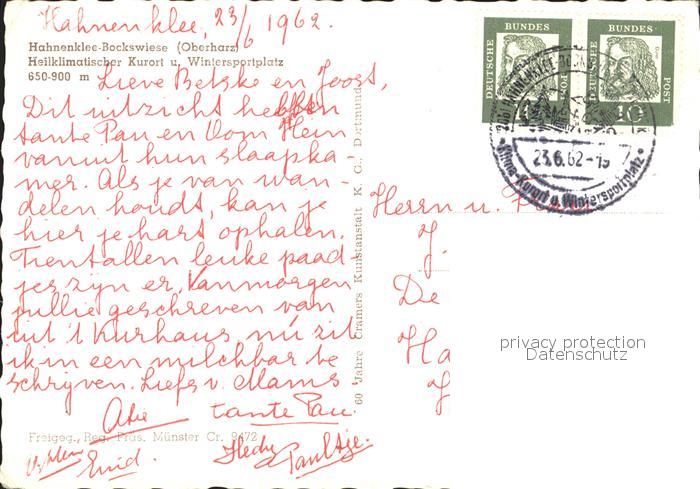 Hahnenklee, 23/6 1962.
Hahnenklee-Bockswiese (Oberharz)
Heilklimatischer Kurort u. Wintersportplatz
650-900 m
Lieve Betske en Joost,
Dit uitzicht hebben
tante Pau en Oom Hein
vanuit hun slaapka-
mer. Als je van wan-
delen houdt, kan je
hier je hart ophalen.
Tientallen leuke paad-
jes zijn er. Vanmorgen
jullie geschreven van
uit 't Kurhaus, nu zit
ik in een milchbar te
schrijven. Liefs v. Mams
tante Pau.
Hedy
Paultje.
Freigeg., Reg. Präs. Münster Cr. 9472
60 Jahre Cramers Kunstanstalt K. G., Dortmund
DEUTSCHE BUNDES POST
10
DEUTSCHE BUNDES POST
10
23.6.62-19
Klima-Kurort u. Wintersportplatz
Herrn u.
J.
De
Ha
privacy protection
Datenschutz